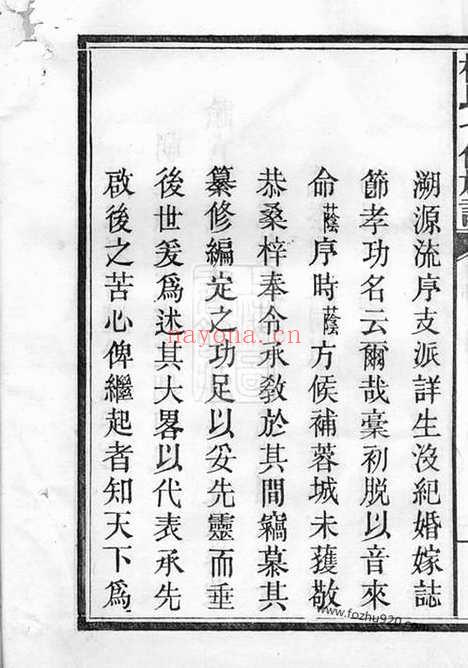 溯源流序支派詳生沒紀婚嫁誌
節孝功名云爾哉稾初脫以音來
命蔭序時蔭方候補蓉城未獲敬
恭桑梓奉令承敎於其間竊慕其
纂修編定之功足以妥先靈而垂
後世爰爲述其大畧以代表承先
啟後之苦心俾繼起者知天下爲
nayona.cn
www.fozhu920.com